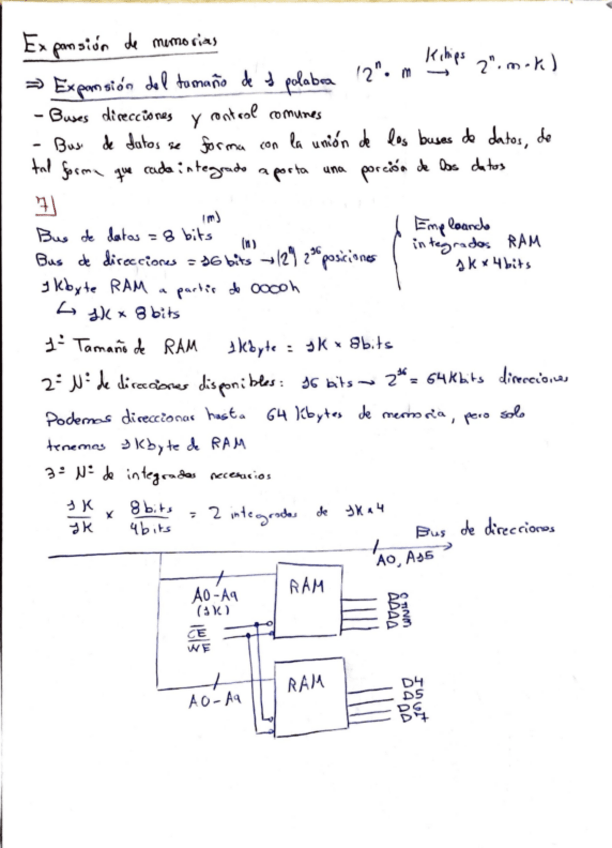 Expansión de memorias
⇒ Expansión del tamaño de 1 palabra (2ⁿ · m K chips → 2ⁿ · m · K)
- Buses direcciones y control comunes
- Bus de datos se forma con la unión de los buses de datos, de
tal forma que cada integrado aporta una porción de los datos
7]
Bus de datos = 8 bits (m)
Bus de direcciones = 16 bits (n) → (2ⁿ) 2¹⁶ posiciones
1Kbyte RAM a partir de 0000h
↳ 1K × 8 bits
Empleando
integrados RAM
1K × 4 bits
1º Tamaño de RAM 1Kbyte = 1K × 8bits
2º Nº de direcciones disponibles: 16 bits → 2¹⁶ = 64Kbits direcciones
Podemos direccionar hasta 64 Kbytes de memoria, pero solo
tenemos 1Kbyte de RAM
3º Nº de integrados necesarios
1K/1K × 8bits/4bits = 2 integrados de 1K×4
Bus de direcciones
A0, A15
A0-A9
(1K)
RAM
D0
D1
D2
D3
CE
WE
A0-A9
RAM
D4
D5
D6
D7